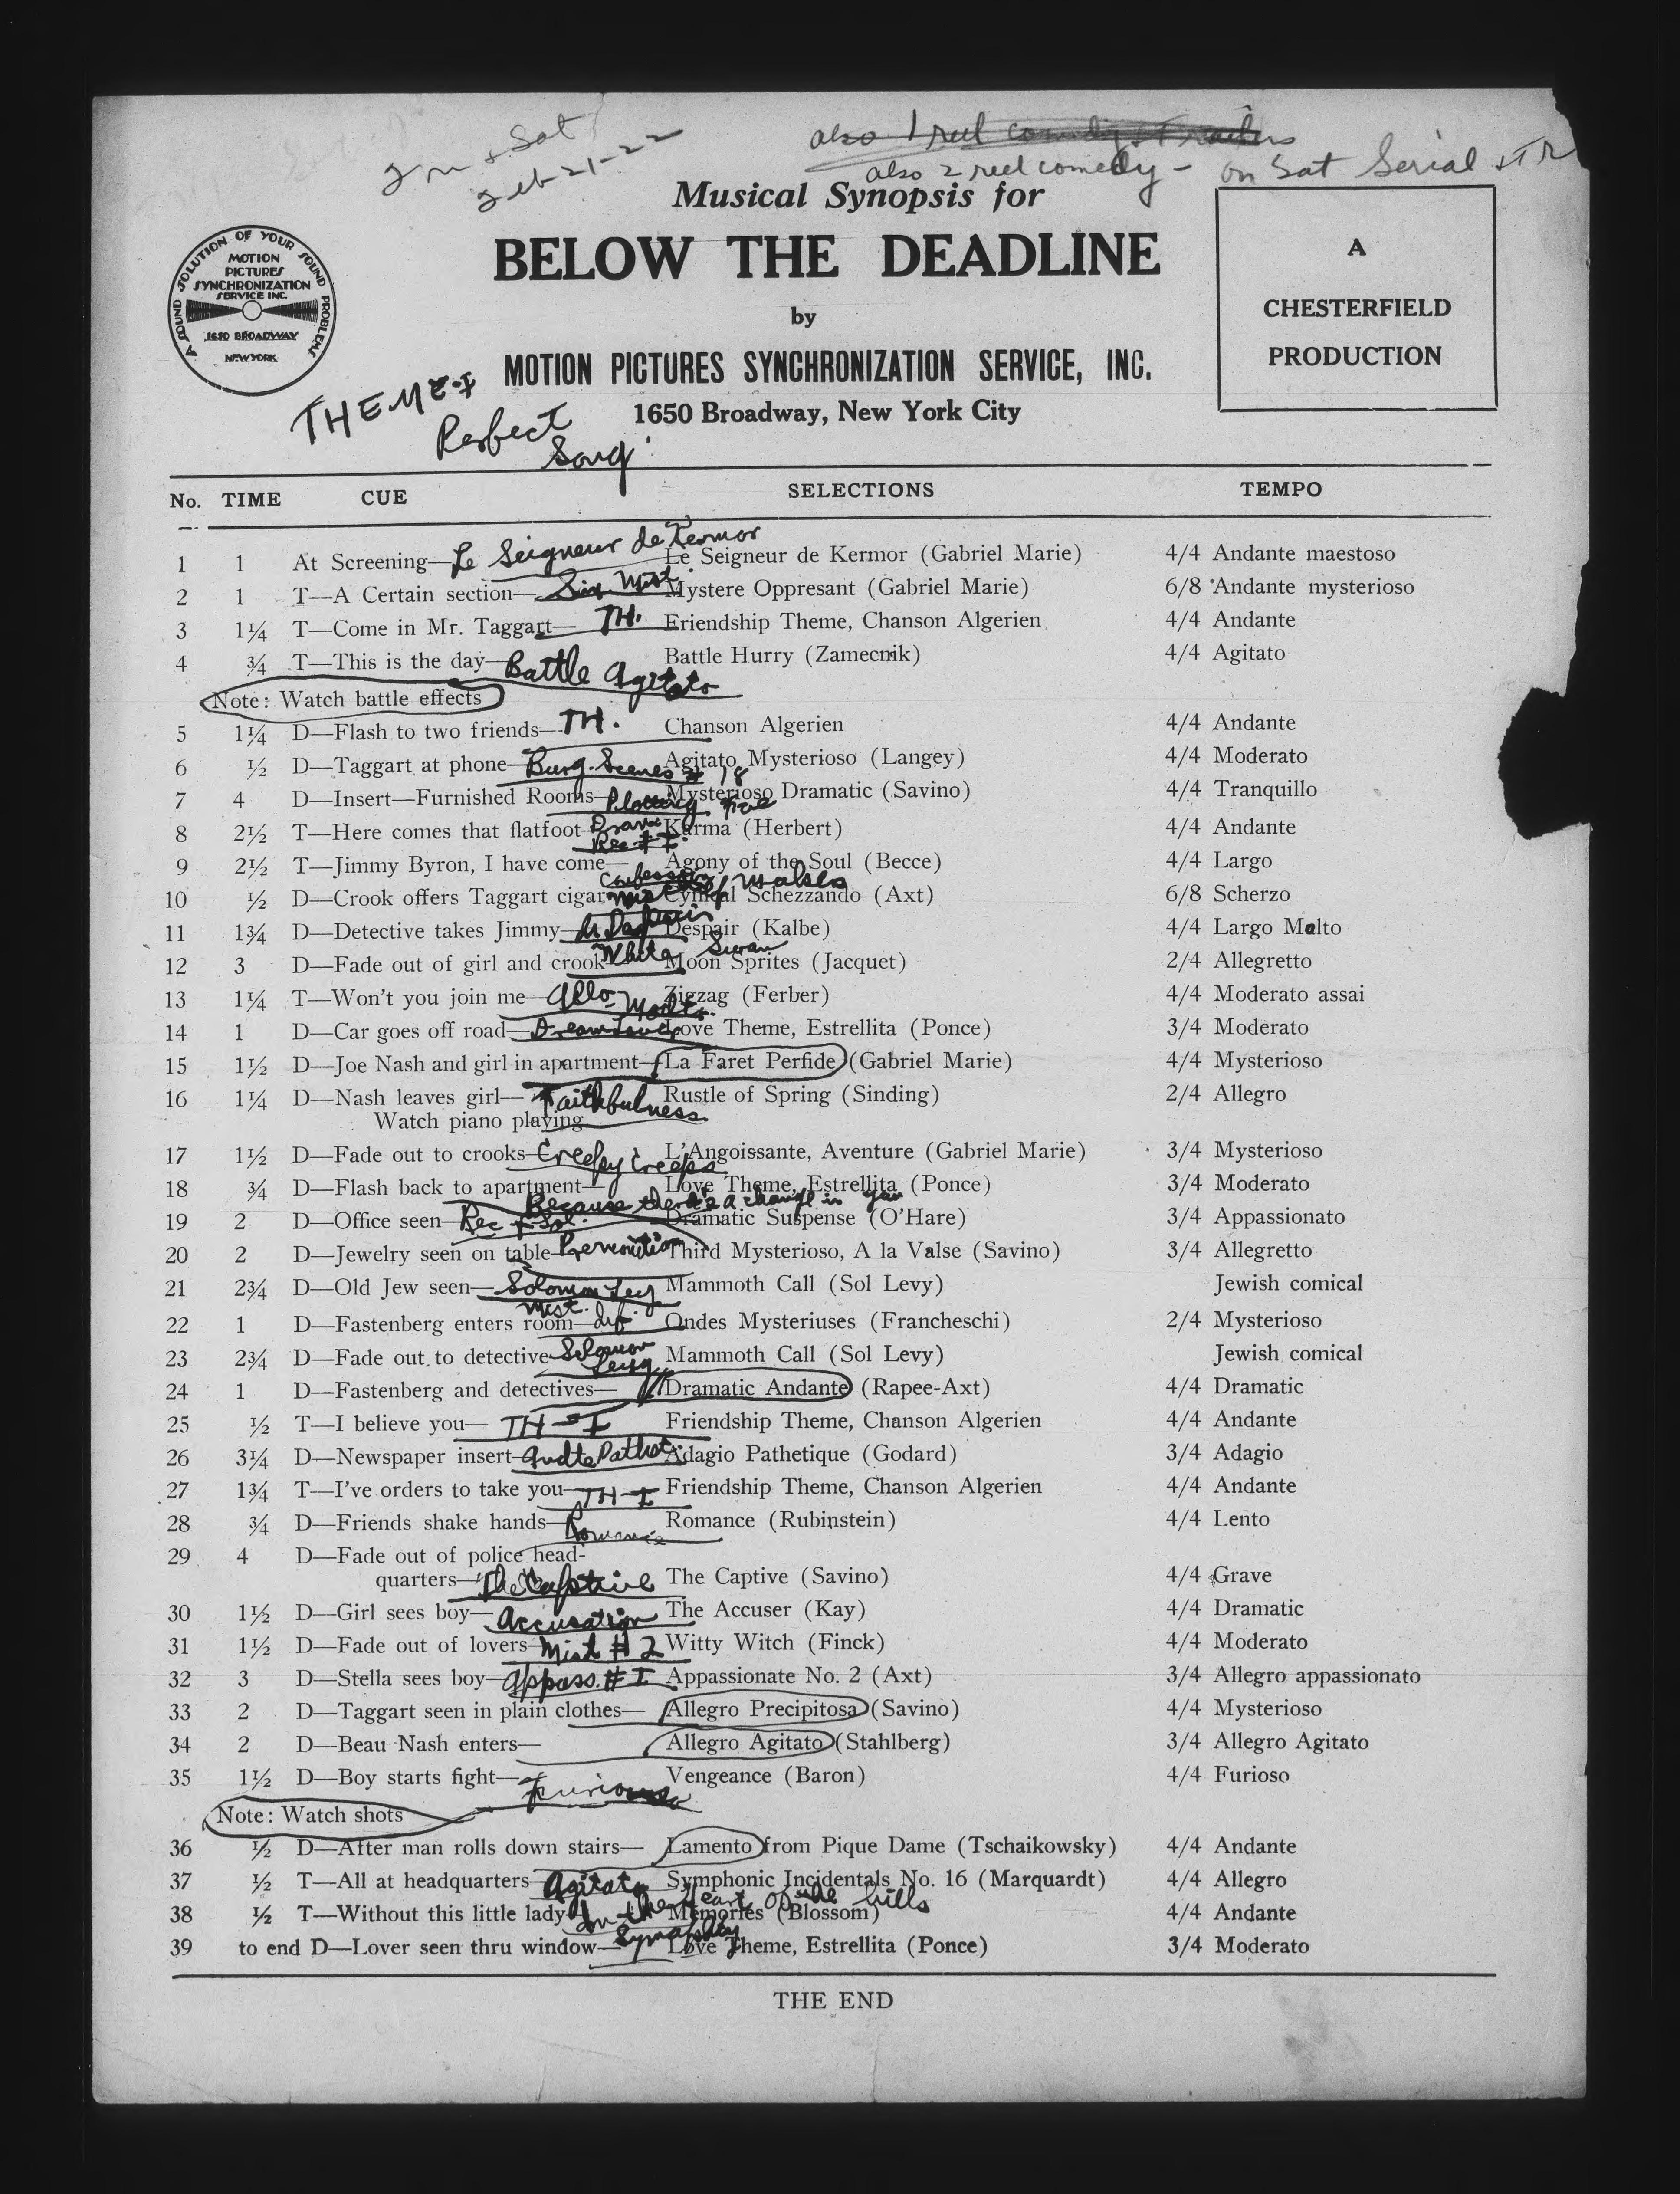 Feb 21-22
also 1 reel comedy & Trailers
also 2 reel comedy - on Sat Serial & TR
Musical Synopsis for
BELOW THE DEADLINE
by
MOTION PICTURES SYNCHRONIZATION SERVICE, INC.
1650 Broadway, New York City
A SOUND SOLUTION OF YOUR SOUND PROBLEMS
MOTION
PICTURES
SYNCHRONIZATION
SERVICE INC.
1650 BROADWAY
NEW YORK
A
CHESTERFIELD
PRODUCTION
THEME-I
Perfect
Song
No. TIME CUE SELECTIONS TEMPO
1 1 At Screening— Le Seigneur de Kermor Le Seigneur de Kermor (Gabriel Marie) 4/4 Andante maestoso
2 1 T—A Certain section— Mystere Oppresant (Gabriel Marie) 6/8 Andante mysterioso
3 1¼ T—Come in Mr. Taggart— TH. Friendship Theme, Chanson Algerien 4/4 Andante
4 ¾ T—This is the day— Battle Agitato Battle Hurry (Zamecnik) 4/4 Agitato
Note: Watch battle effects
5 1¼ D—Flash to two friends— TH. Chanson Algerien 4/4 Andante
6 ½ D—Taggart at phone— Burg. Scenes # 18 Agitato Mysterioso (Langey) 4/4 Moderato
7 4 D—Insert—Furnished Rooms— Plotting Mysterioso Dramatic (Savino) 4/4 Tranquillo
8 2½ T—Here comes that flatfoot— Karma (Herbert) 4/4 Andante
9 2½ T—Jimmy Byron, I have come— Agony of the Soul (Becce) 4/4 Largo
10 ½ D—Crook offers Taggart cigar Cynical Schezzando (Axt) 6/8 Scherzo
11 1¾ D—Detective takes Jimmy— Despair (Kalbe) 4/4 Largo Malto
12 3 D—Fade out of girl and crook White Swan Moon Sprites (Jacquet) 2/4 Allegretto
13 1¼ T—Won't you join me— Allo- Modto. Zigzag (Ferber) 4/4 Moderato assai
14 1 D—Car goes off road— Love Theme, Estrellita (Ponce) 3/4 Moderato
15 1½ D—Joe Nash and girl in apartment— La Faret Perfide (Gabriel Marie) 4/4 Mysterioso
16 1¼ D—Nash leaves girl— Faithfulness Rustle of Spring (Sinding) 2/4 Allegro
Watch piano playing
17 1½ D—Fade out to crooks— Creepy Creeps L'Angoissante, Aventure (Gabriel Marie) 3/4 Mysterioso
18 ¾ D—Flash back to apartment— Love Theme, Estrellita (Ponce) 3/4 Moderato
Because there's a change in you
19 2 D—Office seen— Dramatic Suspense (O'Hare) 3/4 Appassionato
20 2 D—Jewelry seen on table— Premonition Third Mysterioso, A la Valse (Savino) 3/4 Allegretto
21 2¾ D—Old Jew seen— Solomon Levy Mammoth Call (Sol Levy) Jewish comical
22 1 D—Fastenberg enters room— Ondes Mysteriuses (Francheschi) 2/4 Mysterioso
23 2¾ D—Fade out to detective Solomon Levy Mammoth Call (Sol Levy) Jewish comical
24 1 D—Fastenberg and detectives— Dramatic Andante (Rapee-Axt) 4/4 Dramatic
25 ½ T—I believe you— TH-I Friendship Theme, Chanson Algerien 4/4 Andante
26 3¼ D—Newspaper insert— Andte Pathet. Adagio Pathetique (Godard) 3/4 Adagio
27 1¾ T—I've orders to take you— TH-I Friendship Theme, Chanson Algerien 4/4 Andante
28 ¾ D—Friends shake hands— Romance Romance (Rubinstein) 4/4 Lento
29 4 D—Fade out of police head-
quarters— "The Captive The Captive (Savino) 4/4 Grave
30 1½ D—Girl sees boy— Accusation The Accuser (Kay) 4/4 Dramatic
31 1½ D—Fade out of lovers— Mist # 2 Witty Witch (Finck) 4/4 Moderato
32 3 D—Stella sees boy— Appass. # I Appassionate No. 2 (Axt) 3/4 Allegro appassionato
33 2 D—Taggart seen in plain clothes— Allegro Precipitosa (Savino) 4/4 Mysterioso
34 2 D—Beau Nash enters— Allegro Agitato (Stahlberg) 3/4 Allegro Agitato
35 1½ D—Boy starts fight— Furioso Vengeance (Baron) 4/4 Furioso
Note: Watch shots
36 ½ D—After man rolls down stairs— Lamento from Pique Dame (Tschaikowsky) 4/4 Andante
37 ½ T—All at headquarters— Agitato Symphonic Incidentals No. 16 (Marquardt) 4/4 Allegro
38 ½ T—Without this little lady In the Heart of the hills Memories (Blossom) 4/4 Andante
39 to end D—Lover seen thru window— Love Theme, Estrellita (Ponce) 3/4 Moderato
THE END